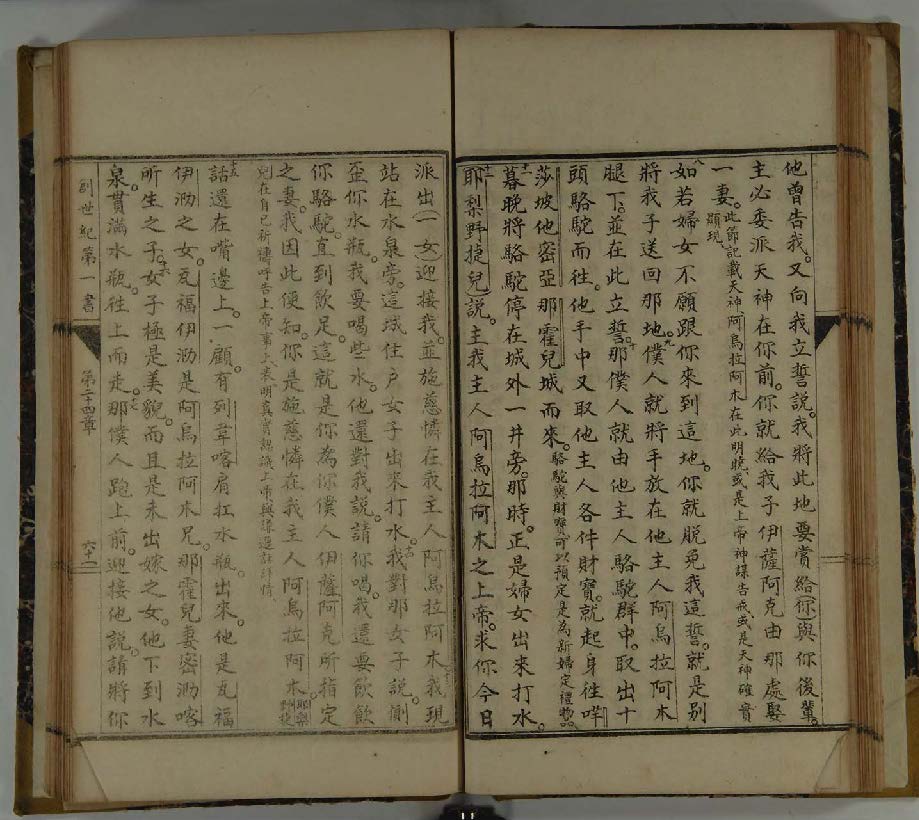 他曾告我。又向我立誓說。我將此地要賞給(你)與你後輩。
主必委派天神在你前。你就給我子伊薩阿克由那處娶
一妻。此節記載天神阿烏拉阿木在此明曉或是上帝神諜告戒或是天神確實顕現
八如若婦女不願跟你來到這地。你就脫免我這誓。就是別
將我子送回那地。九僕人就將手放在他主人阿烏拉阿木
腿下。並在此立誓。十那僕人就由他主人駱駝群中。取出十
頭駱駝而徃。他手中又取他主人各件財寶。就起身徃咩
莎坡他密亞那霍兒城而來。駱駝與財寶可以預定是為新婦定禮物
十一暮晚將駱駝停在城外一井旁那時。正是婦女出來打水。
十二耶梨野捷兒)說。主我主人阿烏拉阿木之上帝。求你今日
派出(一女)迎接我。並施慈憐在我主人阿烏拉阿木。十三我現
站在水泉旁。這城住戶女子出來打水。十四我對那女子說。側
歪你水瓶。我要喝些水。他還對我說。請你喝。我還要飲飲
你駱駝。直到飲足。這就是你為你僕人伊薩阿克所指定
之妻。我因此便知。你是施慈憐在我主人阿烏拉阿木。耶梨野捷
兒在自己祈禱呼告上帝事上表明真實認識上帝與謹遜詳情
十五話還在嘴邊上。一顧。有列韋喀肩扛水瓶。出來。他是瓦福
伊泐之女。瓦福伊泐是阿烏拉阿木兄。那霍兒妻密泐喀
所生之子。十六女子極是美貌。而且是未出嫁之女。他下到水
泉。貫滿水瓶。徃上而走。十七那僕人跑上前。迎接他說。請將你
創世紀第一書
第二十四章
六十二